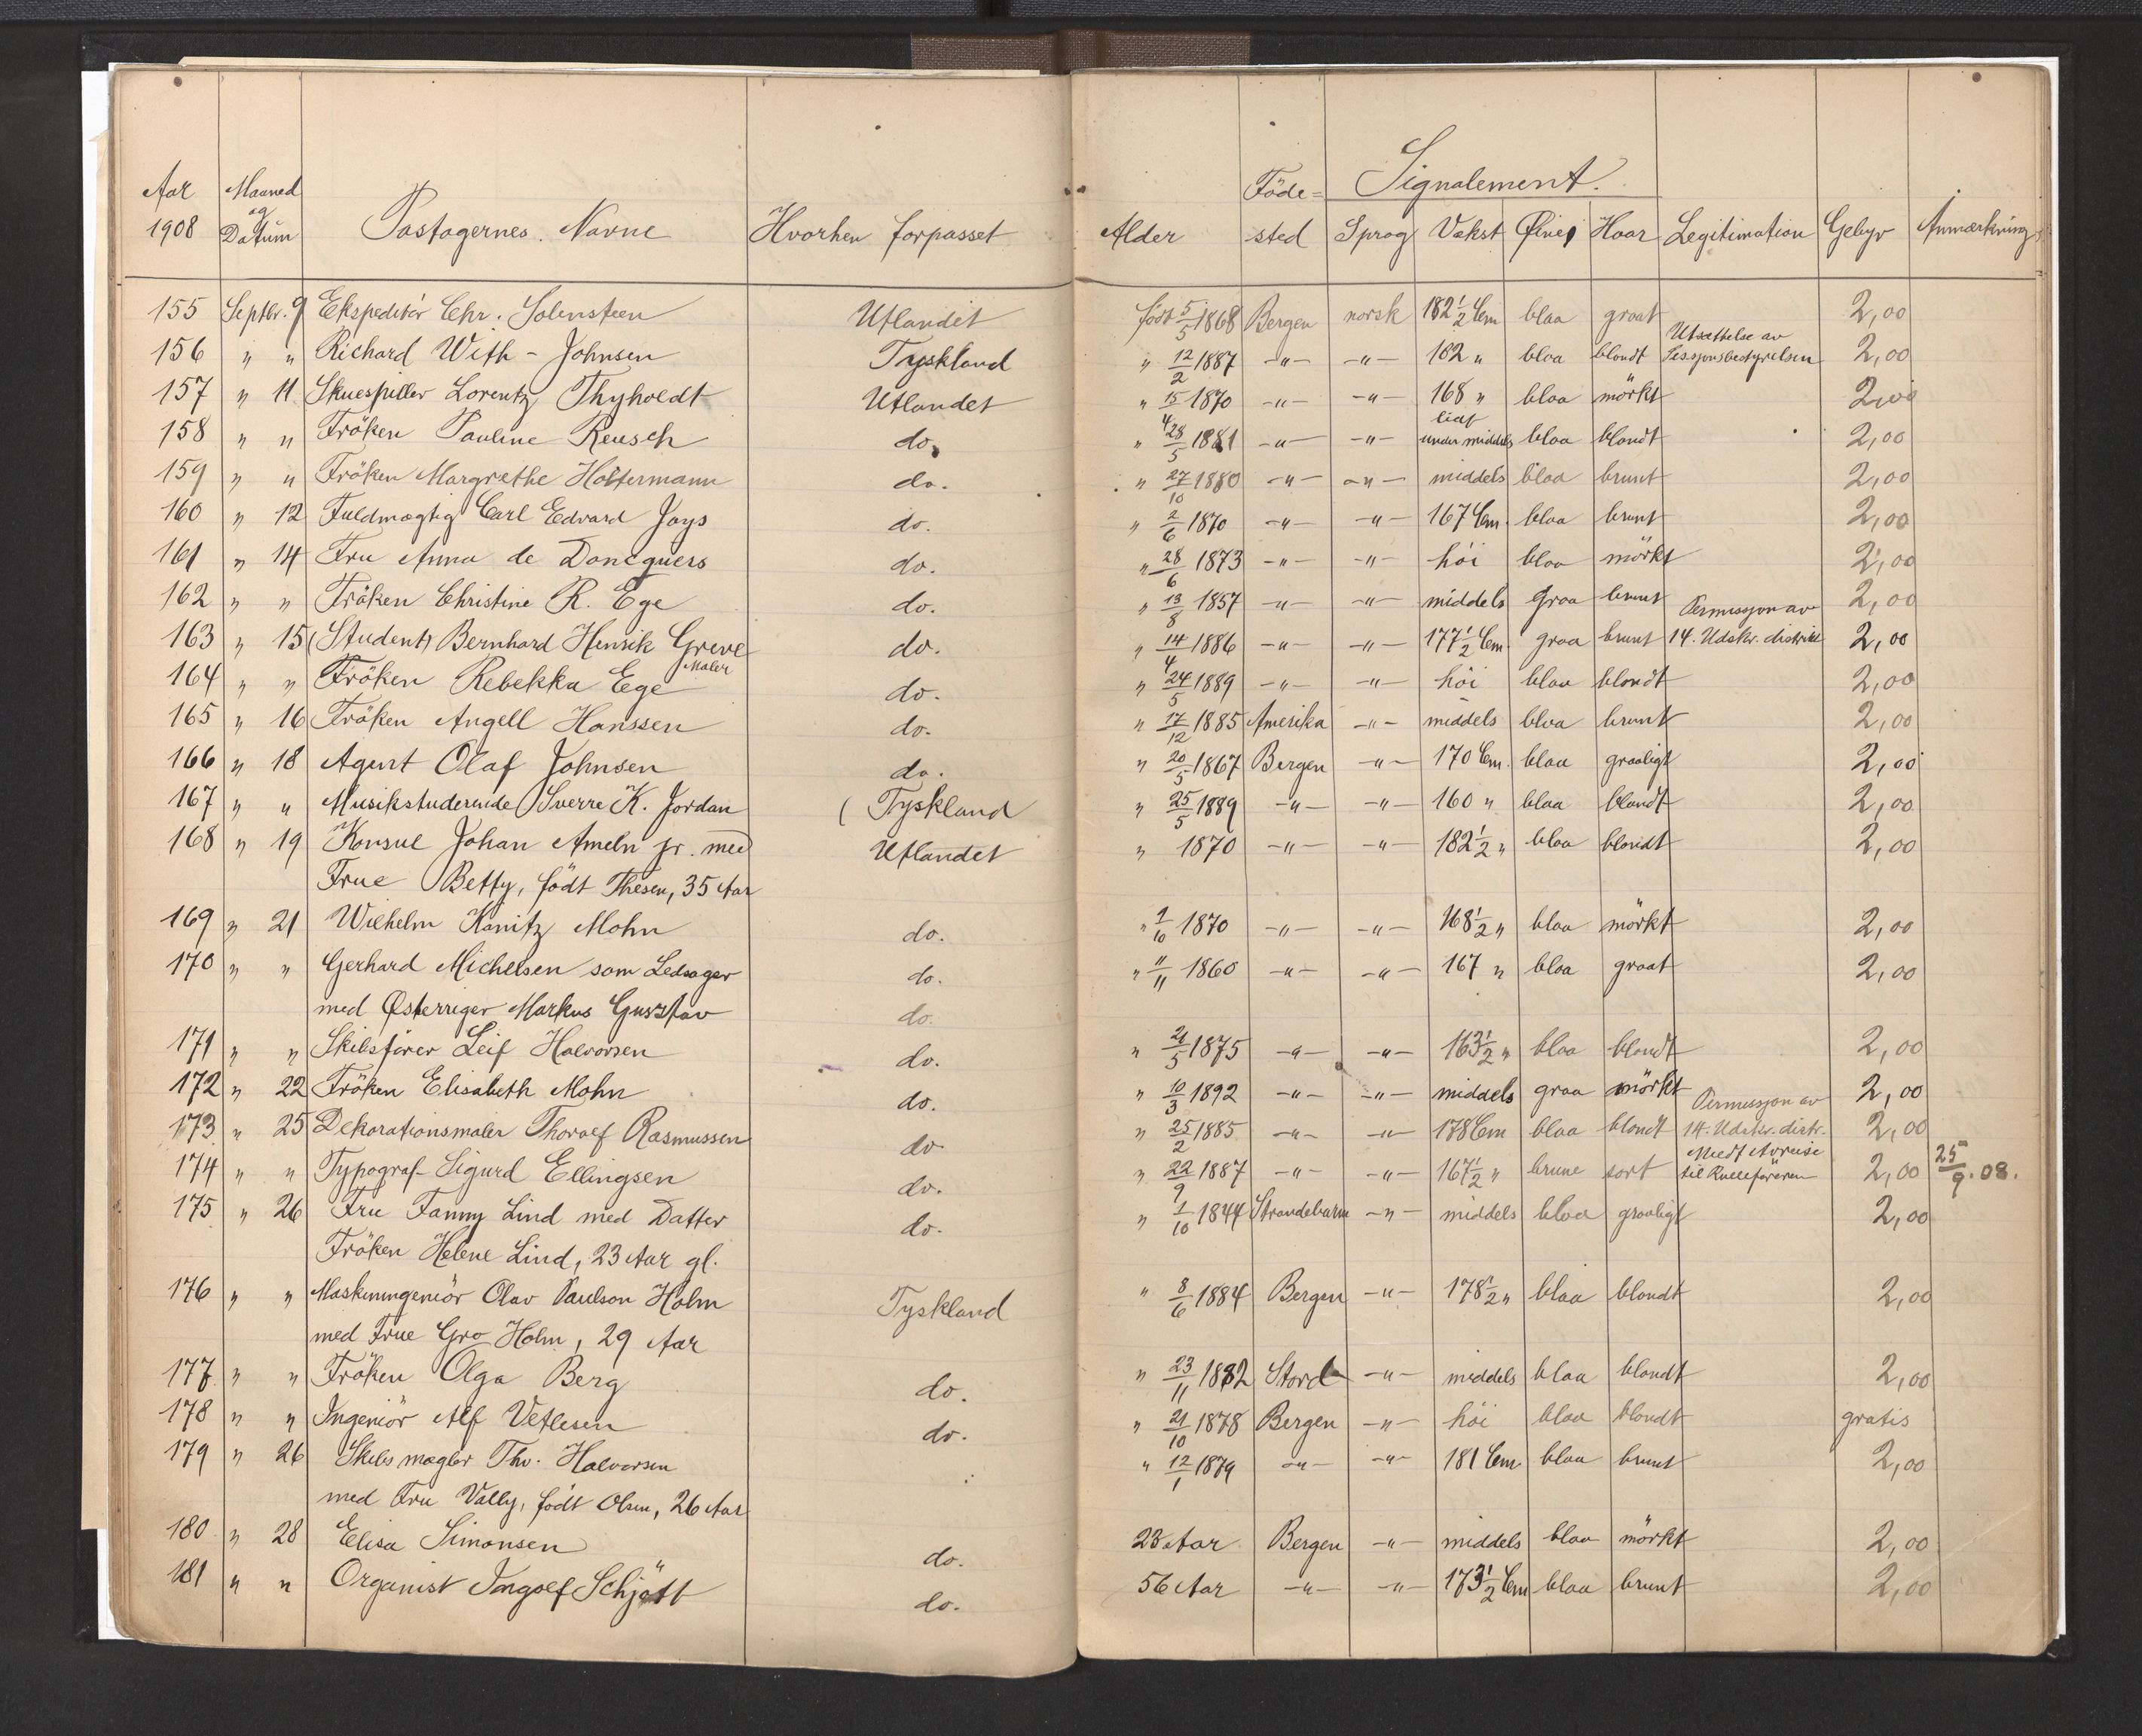 Aar Maaned og Föde= Signalement.
1908 Datum Pastagernes Navne Hvorhen forpasset Alder sted Sprog Vækst Øine Haar Legitimation Gebyr Anmærkning
155 Septbr. 9 Ekspeditör Chr. Solensteen Utlandet født 5/5 1868 Bergen norsk 182 1/2 Cm blaa graat 2,00
Utsættelse av
156 " " Richard With - Johnsen Tyskland " 12/2 1887 -"- -"- 182 " blaa blondt Sessjonsbestyrelsen 2,00
157 " 11 Skuespiller Lorentz Thyholdt Utlandet " 15/4 1870 -"- -"- 168 " blaa mörkt 2,00
158 " " Fröken Pauline Reusch do. " 28/5 1881 -"- -"- lidt under middels blaa blondt 2,00
159 " " Fröken Margrethe Holtermann do. " 27/10 1880 -"- -"- middels blaa brunt 2,00
160 " 12 Fuldmægtig Carl Edvard Jays do. " 2/6 1870 -"- -"- 167 Cm. blaa brunt 2,00
161 " 14 Fru Anna de Doncquers do. " 28/6 1873 -"- -"- høi blaa mörkt 2,00
162 " " Fröken Christine R. Ege do. " 13/8 1857 -"- -"- middels graa brunt 2,00
Permissjon av
163 " 15 (Student) Bernhard Henrik Greve do. " 14/4 1886 -"- -"- 177 1/2 Cm. graa brunt 14. Udskr. distrikt 2,00
Maler
164 " " Fröken Rebekka Ege do. " 24/5 1889 -"- -"- höi blaa blondt 2,00
165 " 16 Fröken Angell Hanssen do. " 17/12 1885 Amerika -"- middels blaa brunt 2,00
166 " 18 Agent Olaf Johnsen do. " 20/5 1867 Bergen -"- 170 Cm. blaa graaligt 2,00
167 " " Musikstuderende Sverre K. Jordan ( Tyskland " 25/5 1889 -"- -"- 160 " blaa blondt 2,00
168 " 19 Konsul Johan Ameln jr. med Utlandet " 1870 -"- -"- 182 1/2 " blaa blondt 2,00
Frue Betty, födt Thesen, 35 Aar
169 " 21 Wilhelm Konitz Mohn do. " 1/10 1870 -"- -"- 168 1/2 " blaa mörkt 2,00
170 " " Gerhard Michelsen som Ledsager do. " 11/11 1860 -"- -"- 167 " blaa graat 2,00
med Østerriger Markus Gusztav do.
171 " " Skibsfører Leif Halvorsen do. " 21/5 1875 -"- -"- 163 1/2 " blaa blondt 2,00
172 " 22 Fröken Elisabeth Mohn do. " 10/3 1892 -"- -"- middels graa mörkt 2,00
Permissjon av
173 " 25 Dekorationsmaler Thoralf Rasmussen do " 25/2 1885 -"- -"- 178 Cm blaa blondt 14. Udskr. distr. 2,00
174 " " Typograf Sigurd Ellingsen do. " 22/9 1887 -"- -"- 167 1/2 " brune sort Medt Avreise til Rulleföreren 2,00 25/9.08.
175 " 26 Fru Fanny Lind med Datter do. " 1/10 1844 Strandebarm -"- middels blaa graaligt 2,00
Fröken Helene Lind, 23 Aar gl.
176 " " Maskiningeniör Olav Paulson Holm Tyskland " 8/6 1884 Bergen -"- 178 1/2 " blaa blondt 2,00
med Frue Gro Holm, 29 Aar
177 " " Fröken Olga Berg do. " 23/11 1882 Stord -"- middels blaa blondt 2,00
178 " " Ingeniör Alf Vetlesen do. " 21/10 1878 Bergen -"- höi blaa blondt gratis
179 " 26 Skibsmægler Thv. Halvorsen " 12/1 1879 -"- -"- 181 Cm. blaa brunt 2,00
med Fru Vally, født Olsen, 26 Aar
180 " 28 Elisa Simonsen do. 23 Aar Bergen -"- middels blaa mörkt 2,00
181 " " Organist Ingolf Schjött do. 56 Aar -"- -"- 173 1/2 Cm blaa brunt 2,00